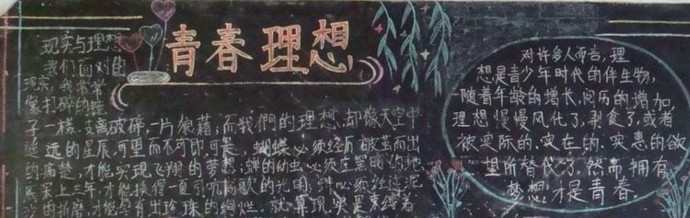 青春理想
现实与理想
我们面对自
现实,我常常
像打碎的镜
子一样,支离破碎,一片狼藉,而我們的理想,却像天空中
遥远的星辰,可望而不可即,可是,蝴蝶必须经历破茧而出
的痛楚,才能实现飞翔的梦想;蝉的幼虫必须在黑暗的地
底呆上三年,才能换得一夏引吭高歌的光阴;蚌必须经过泥
沙的折磨,才能孕育出珍珠的绚烂。就算现实是束缚着
对许多人而言,理
想是青少年时代的伴生物,
随着年龄的增长,阅历的增加,
理想慢慢风化了,剥食了,或者
被实际的,实在的,实惠的欲
望所替代了,然而拥有
梦想才是青春